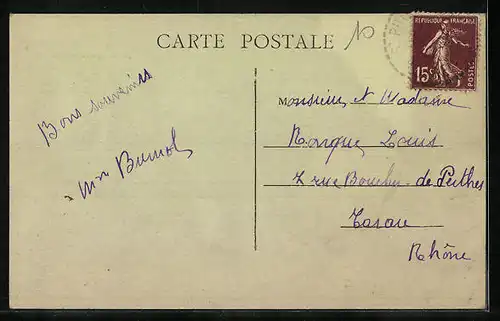 CARTE POSTALE
REPUBLIQUE FRANÇAISE
15c
POSTES
Bons souvenirs
Monsieur et Madame
Louis
7 rue Boucher-de-Perthes
Tarare
Rhône